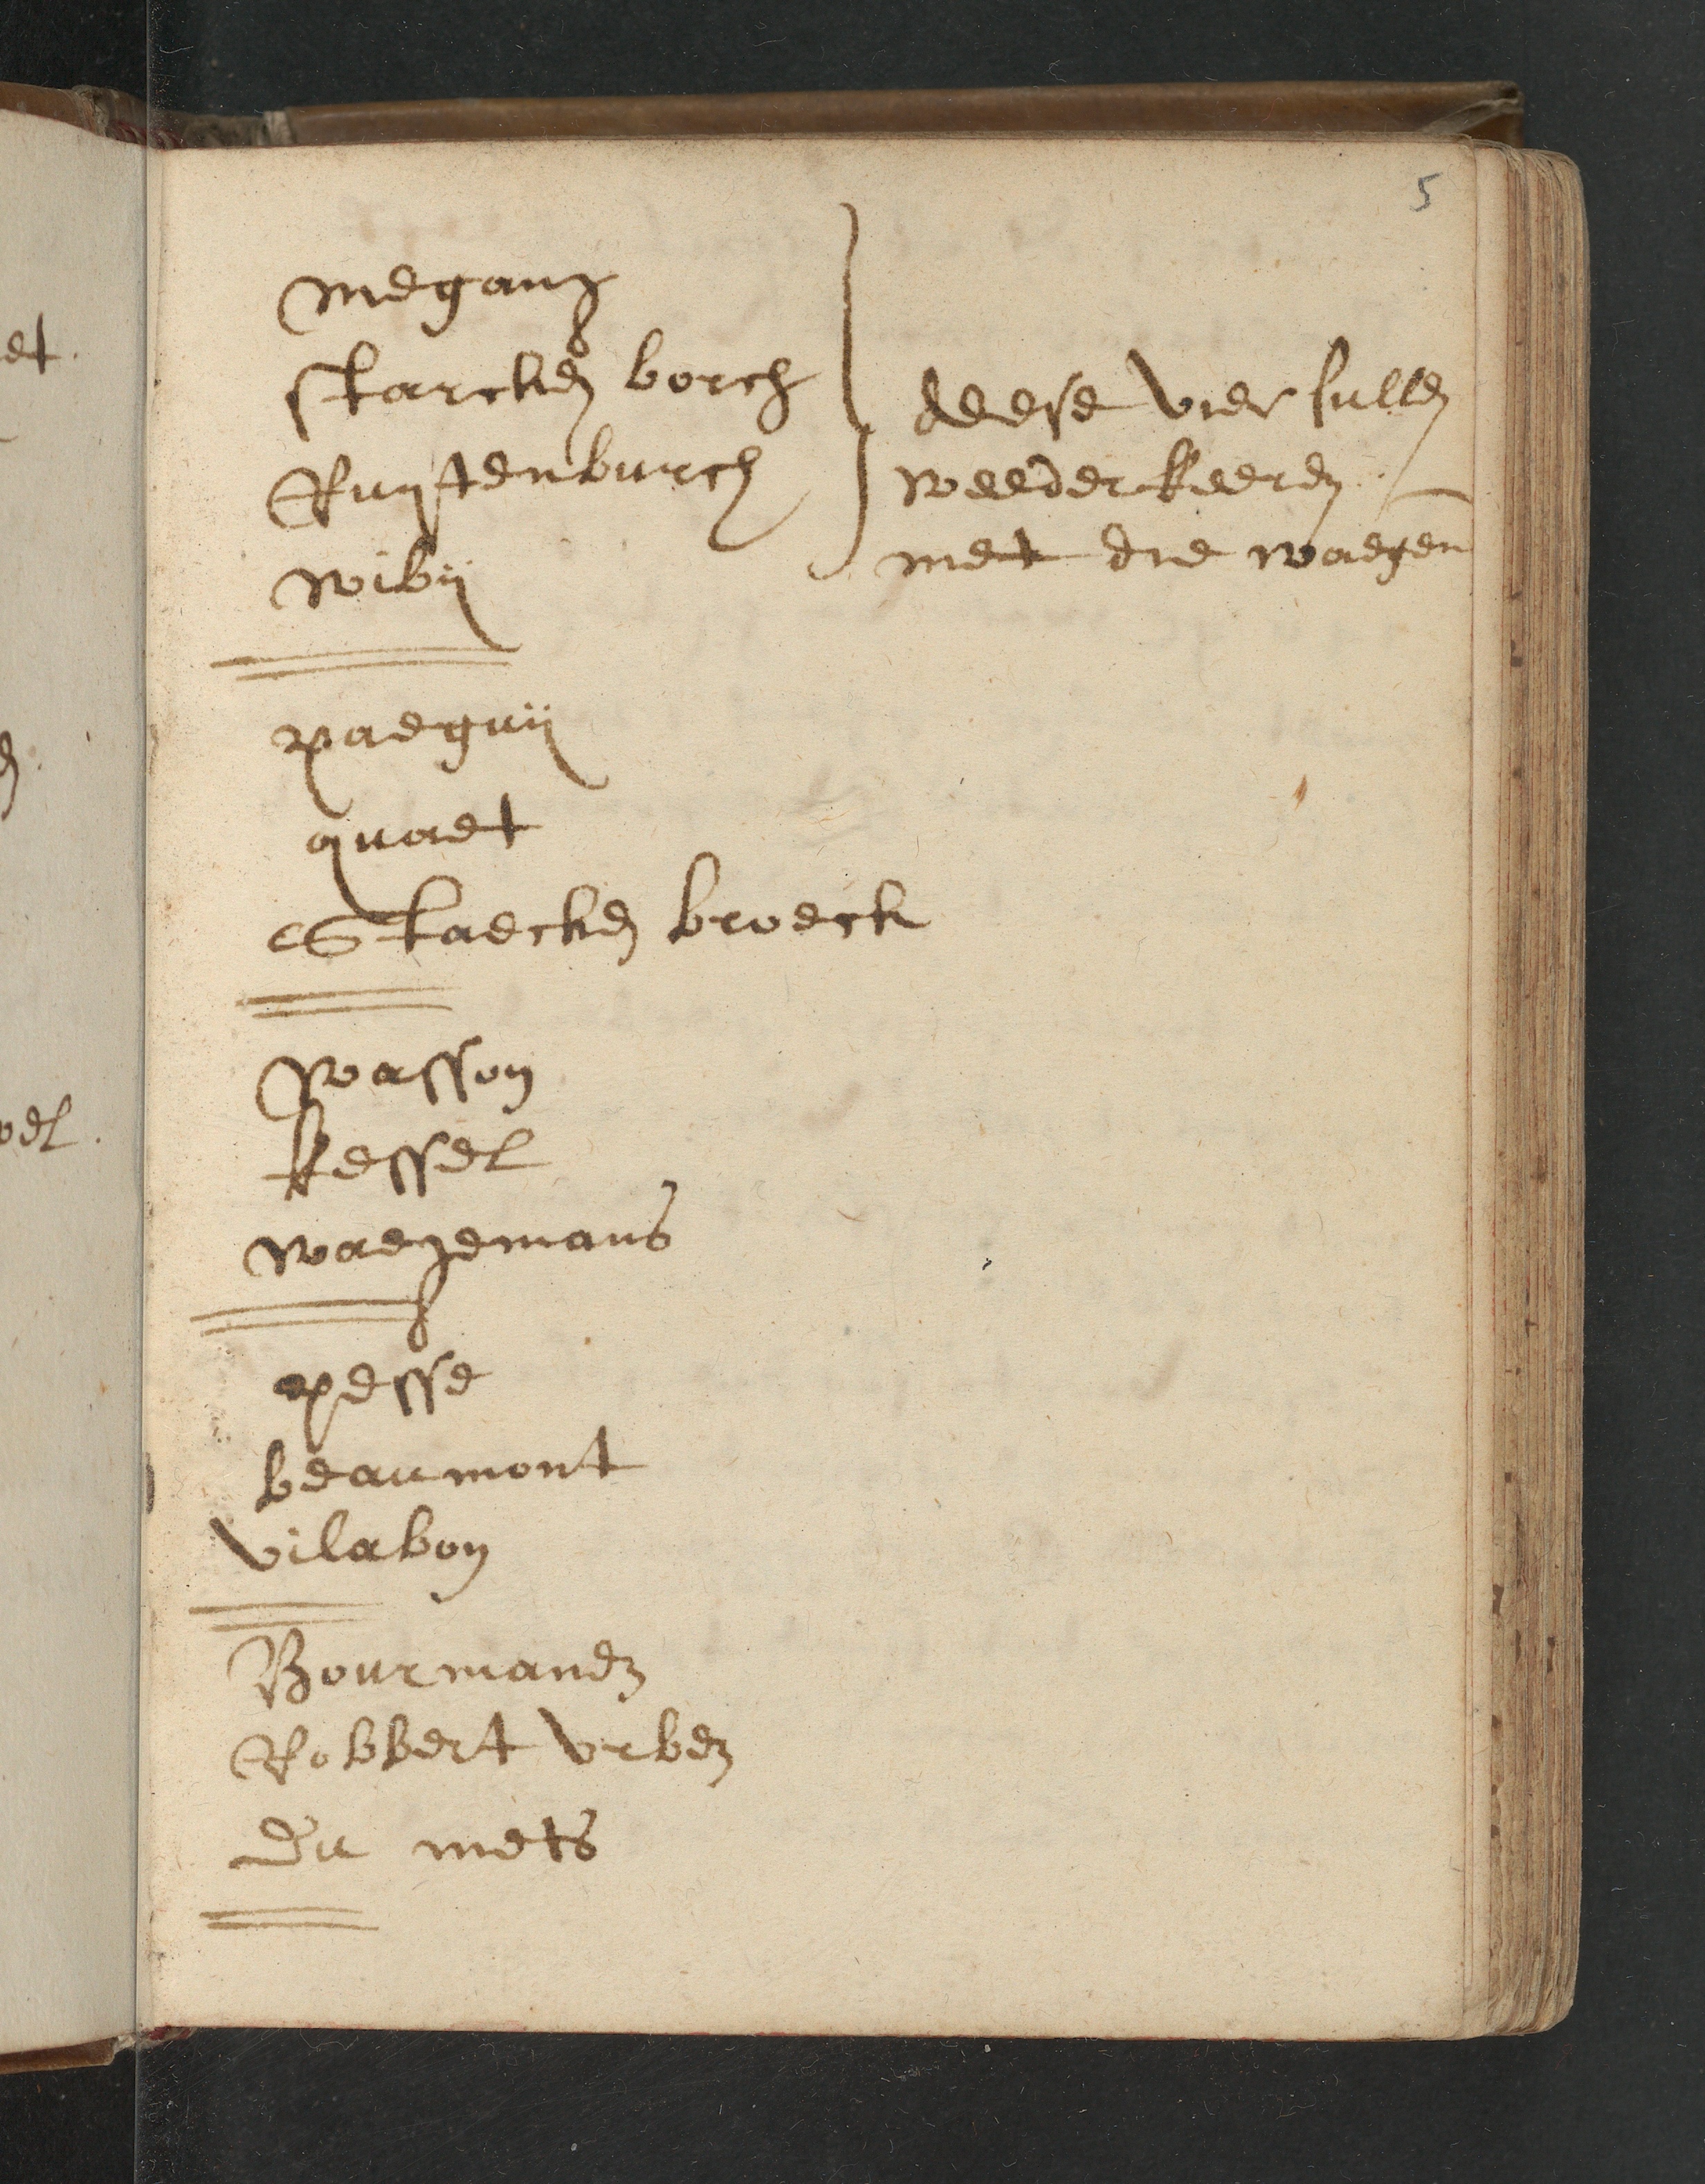 5
meganz
starcken borch
Ruijstenburch
wibij
deese vier sullen
weederkeeren
met die waegen
paeguij
quaet
Staecken broeck
wasson
kessel
waezemans
pesse
beaumont
vilabon
Bourmandz
Robbert vrbez
du mets
et.